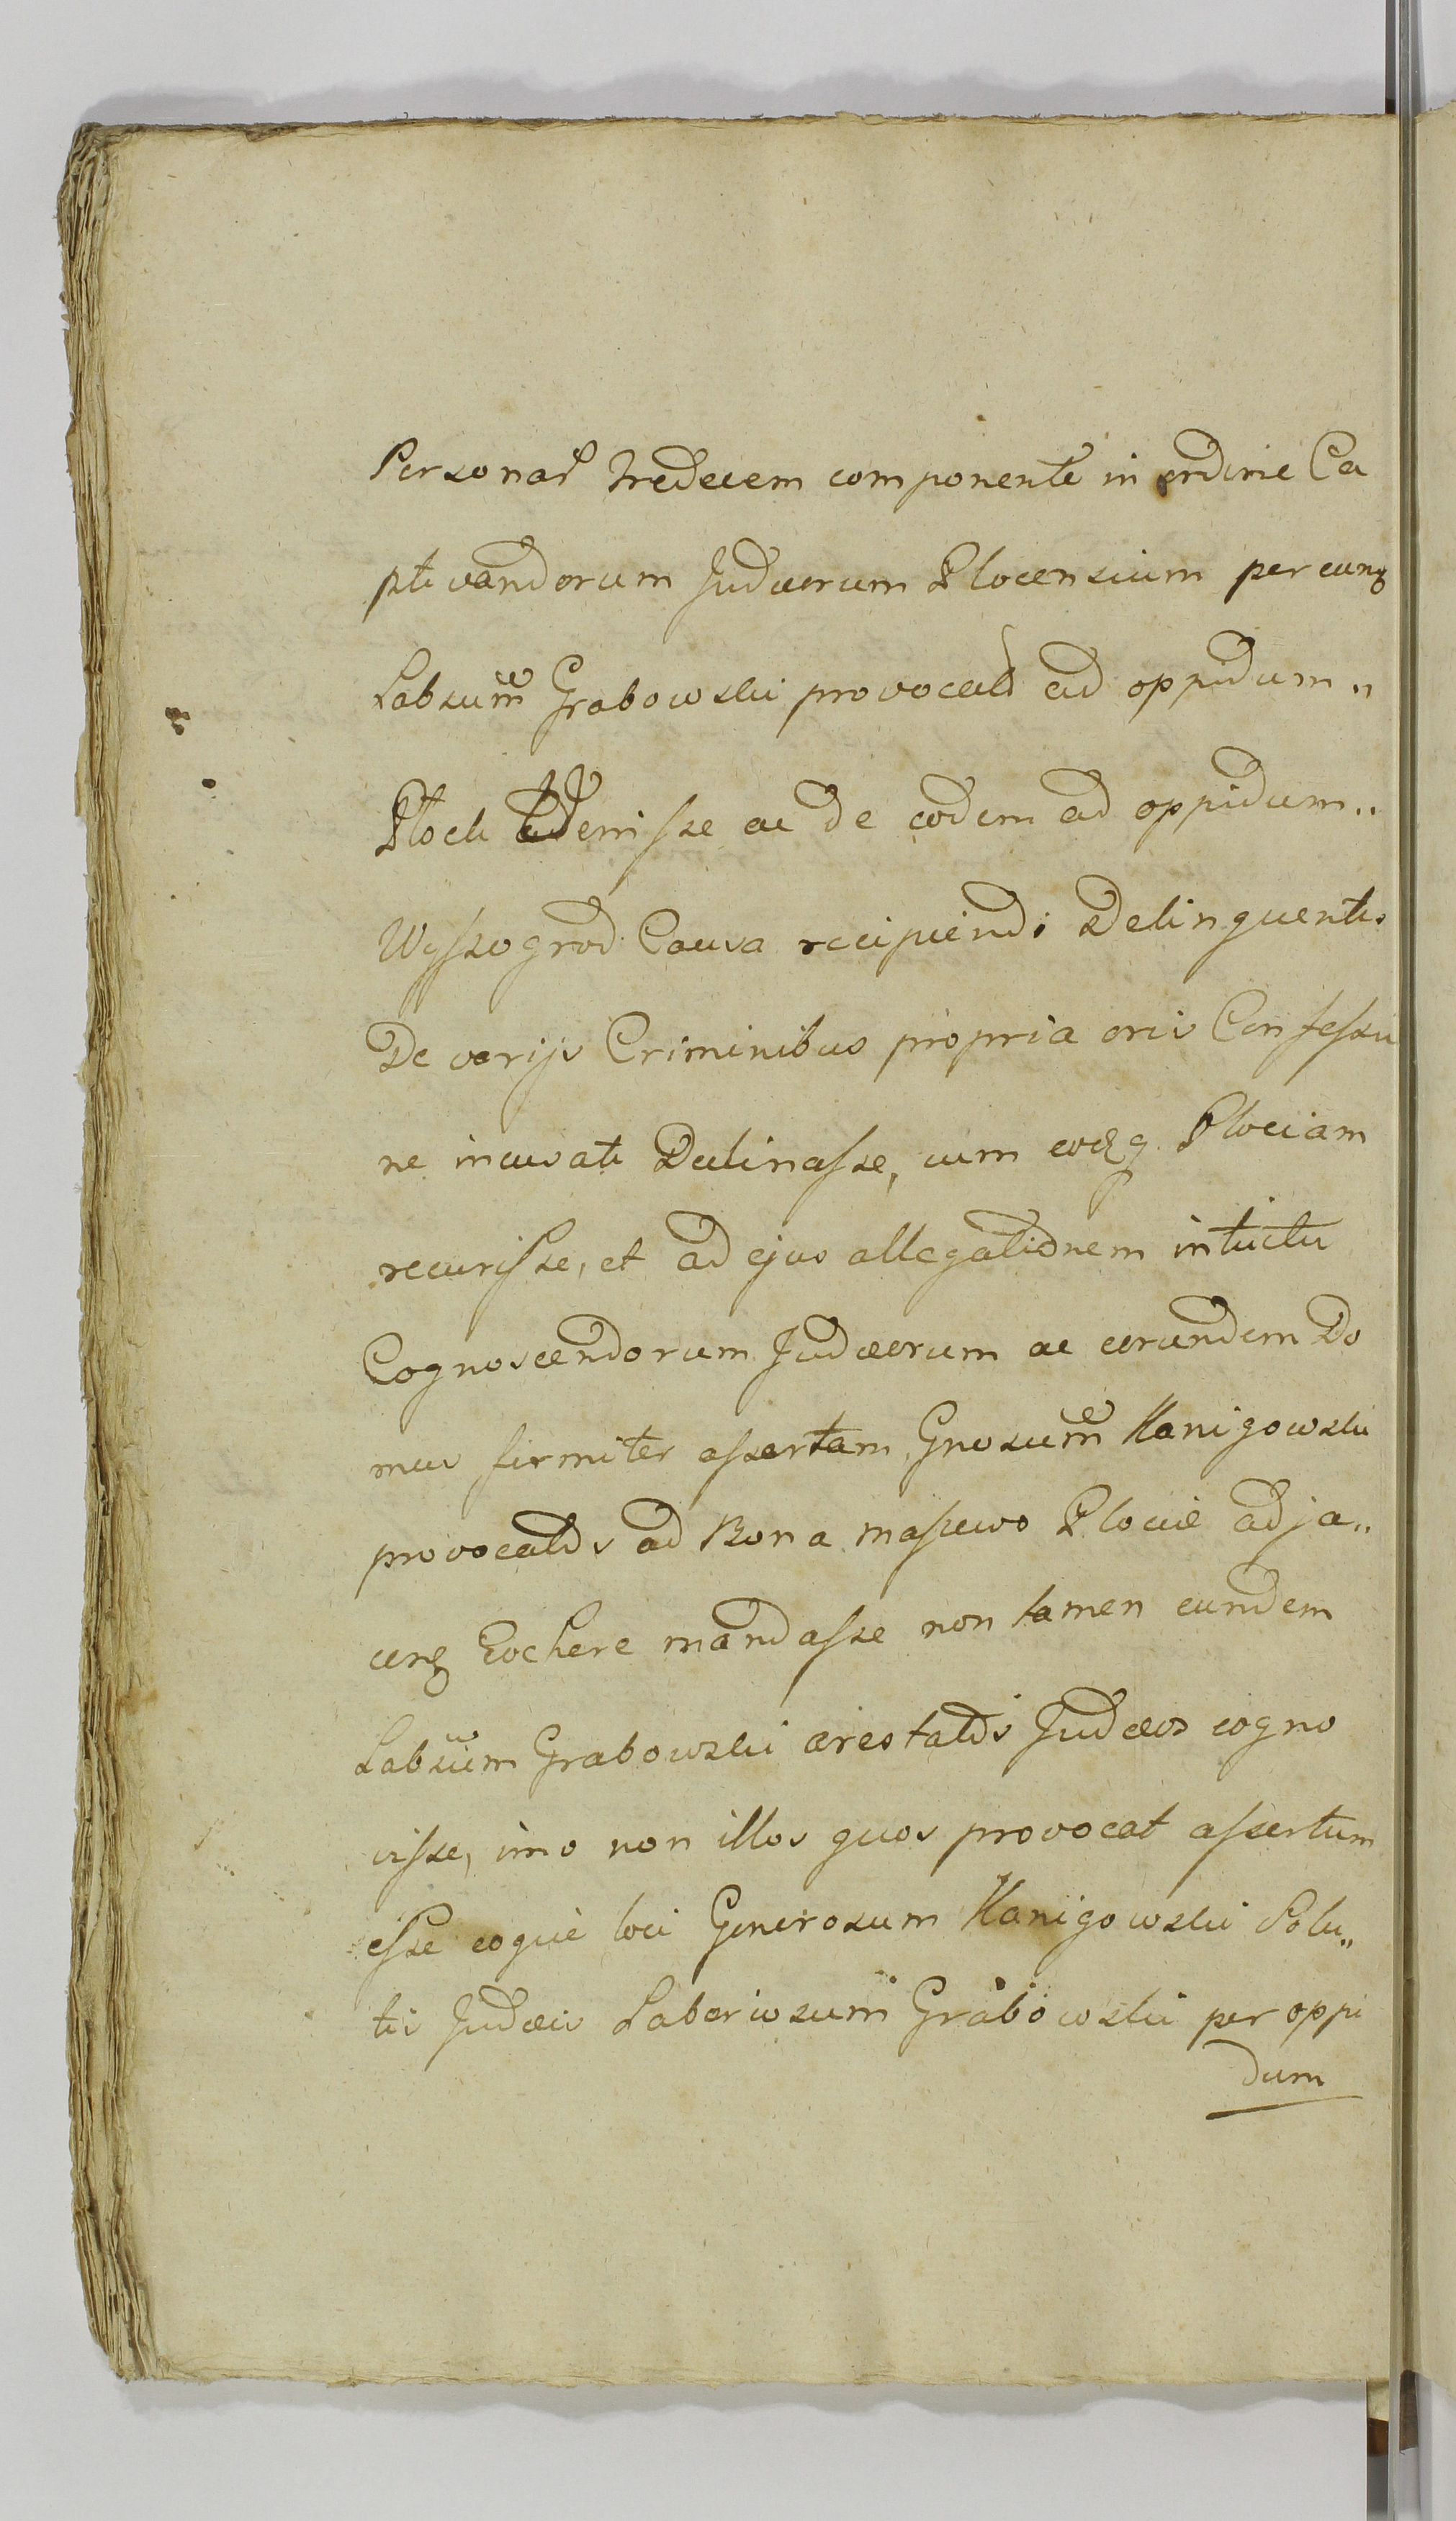 Personar Tredecem componente in ordine Ca
ptivandorum Judæorum Plocensium per eung
Labsum Grabowski provocatd ad oppidum„
Plock adveniſse ac de eodem ad oppidum„
Wyſzogrod Causa recipiendi Delinquentis
De varijs Criminibus propria oris Confeſsio
ne incusati Declinaſse, cum eodg Plociam
recuriſse, et ad ejus allegationem intuitu
Cognoscendorum Judæorum ac eorundem Do
mus firmiter aſsertam, Gnosum Kanigowski
provocatds ad Bona Maſzewo Plociæ adja„
ceng Evehere mandaſse non tamen eundem
Labsum Grabowski arestatds Judæos cogno
viſse, imo non illos quos provocat aſsertum
eſse eoquè loci Generosum Kanigowski Solu„
tis Judæis Laboriosum Grabowski per oppi
dum